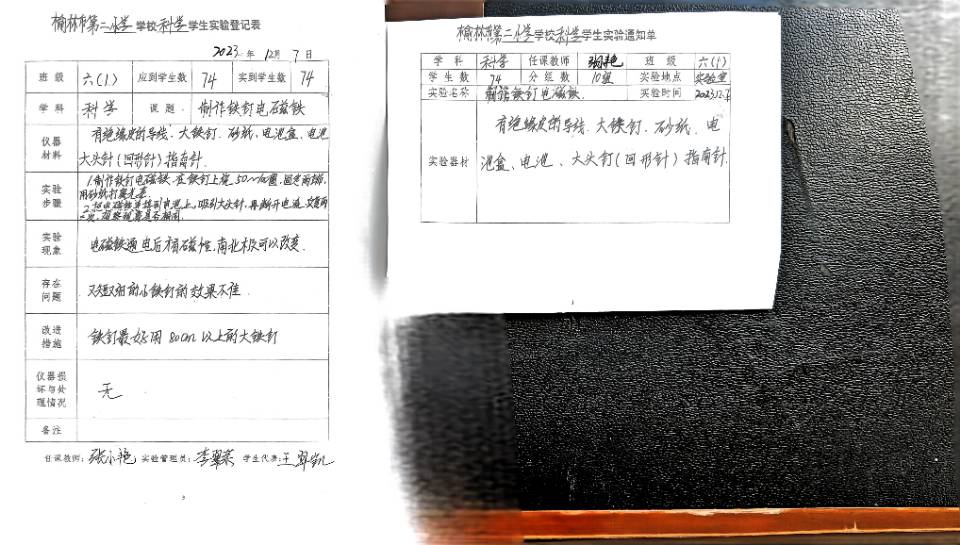 榆林市第二小学学校科学学生实验登记表
2023年12月7日
班级 六(1) 应到学生数 74 实到学生数 74
学科 科学 课题 制作铁钉电磁铁
仪器材料 有绝缘皮的导线、大铁钉、砂纸、电池盒、电池
大头针(回形针)指南针
实验步骤 1.制作铁钉电磁铁.在铁钉上绕50~100圈,固定两端,
用砂纸打磨
2.把电磁铁连接到电池上,吸引大头针,再断开电流
实验现象 电磁铁通电后有磁性,南北极可以改变.
存在问题 又短又细的小铁钉的效果不佳
改进措施 铁钉最好用80cm以上的大铁钉
仪器损坏与处理情况 无
备注
任课教师:张小艳 实验管理员:李翠荣 学生代表:王
榆林市第二小学学校科学学生实验通知单
学科 科学 任课教师 班级 六(1)
学生数 74 分组数 10组 实验地点 实验室
实验名称 制作铁钉电磁铁. 实验时间 2023.12.7
有绝缘皮的导线、大铁钉、砂纸、电
实验器材 池盒、电池、大头针(回形针)指南针